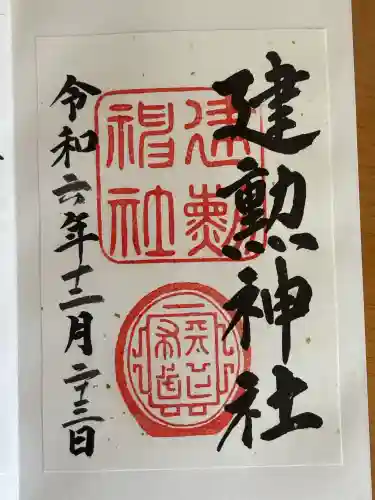 建勲神社
建勲
神社
令和六年十二月二十三日